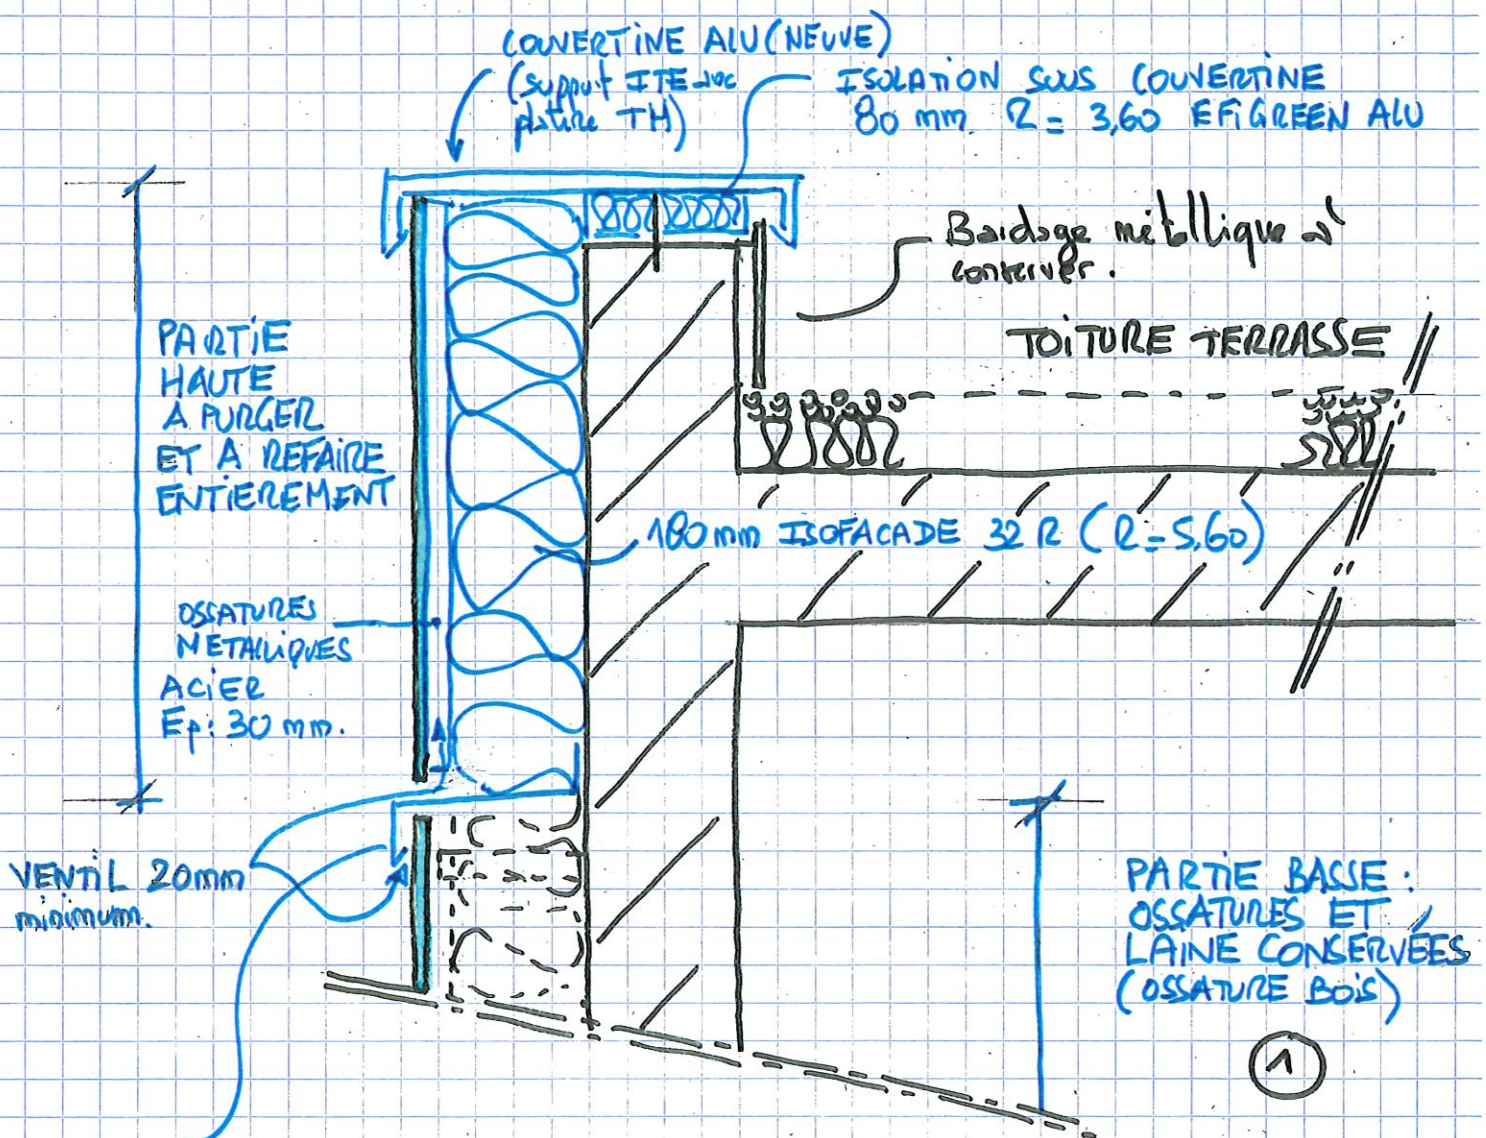 COUVERTINE ALU (NEUVE)
(support ITE avec
platine TH)
ISOLATION SOUS COUVERTINE
80 mm R = 3,60 EFIGREEN ALU
Bardage métallique à
conserver.
TOITURE TERRASSE
PARTIE
HAUTE
A PURGER
ET A REFAIRE
ENTIEREMENT
180 mm ISOFACADE 32 R (R=5,60)
OSSATURES
METALLIQUES
ACIER
Ep: 30 mm.
VENTIL 20mm
minimum.
PARTIE BASSE :
OSSATURES ET
LAINE CONSERVÉES
(OSSATURE BOIS)
1